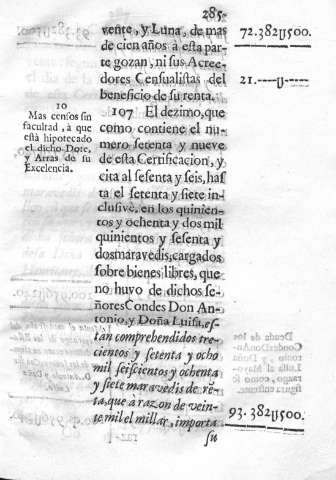 285.
vente, y Luna, de mas
de cien años à esta par-
te gozan, ni sus Acree-
dores Censualistas del
beneficio de su renta.
72.382U500.
21.----U-----
10
Mas censos sin
facultad, à que
està hipotecado
el dicho Dote,
y Arras de su
Excelencia.
107 El dezimo, que
como contiene el nu-
mero setenta y nueve
de esta Certificacion, y
cita al sesenta y seis, has
ta el setenta y siete in-
clusive, en los quinien-
tos y ochenta y dos mil
quinientos y sesenta y
dos maravedis, cargados
sobre bienes libres, que
no huvo de dichos se-
ñores Condes Don An-
tonio, y Doña Luisa, es-
tan comprehendidos tre-
cientos y setenta y ocho
mil seiscientos y ochenta
y siete maravedis de rē-
ta, que à razon de vein-
te mil el millar, importa
su
93.382U500.